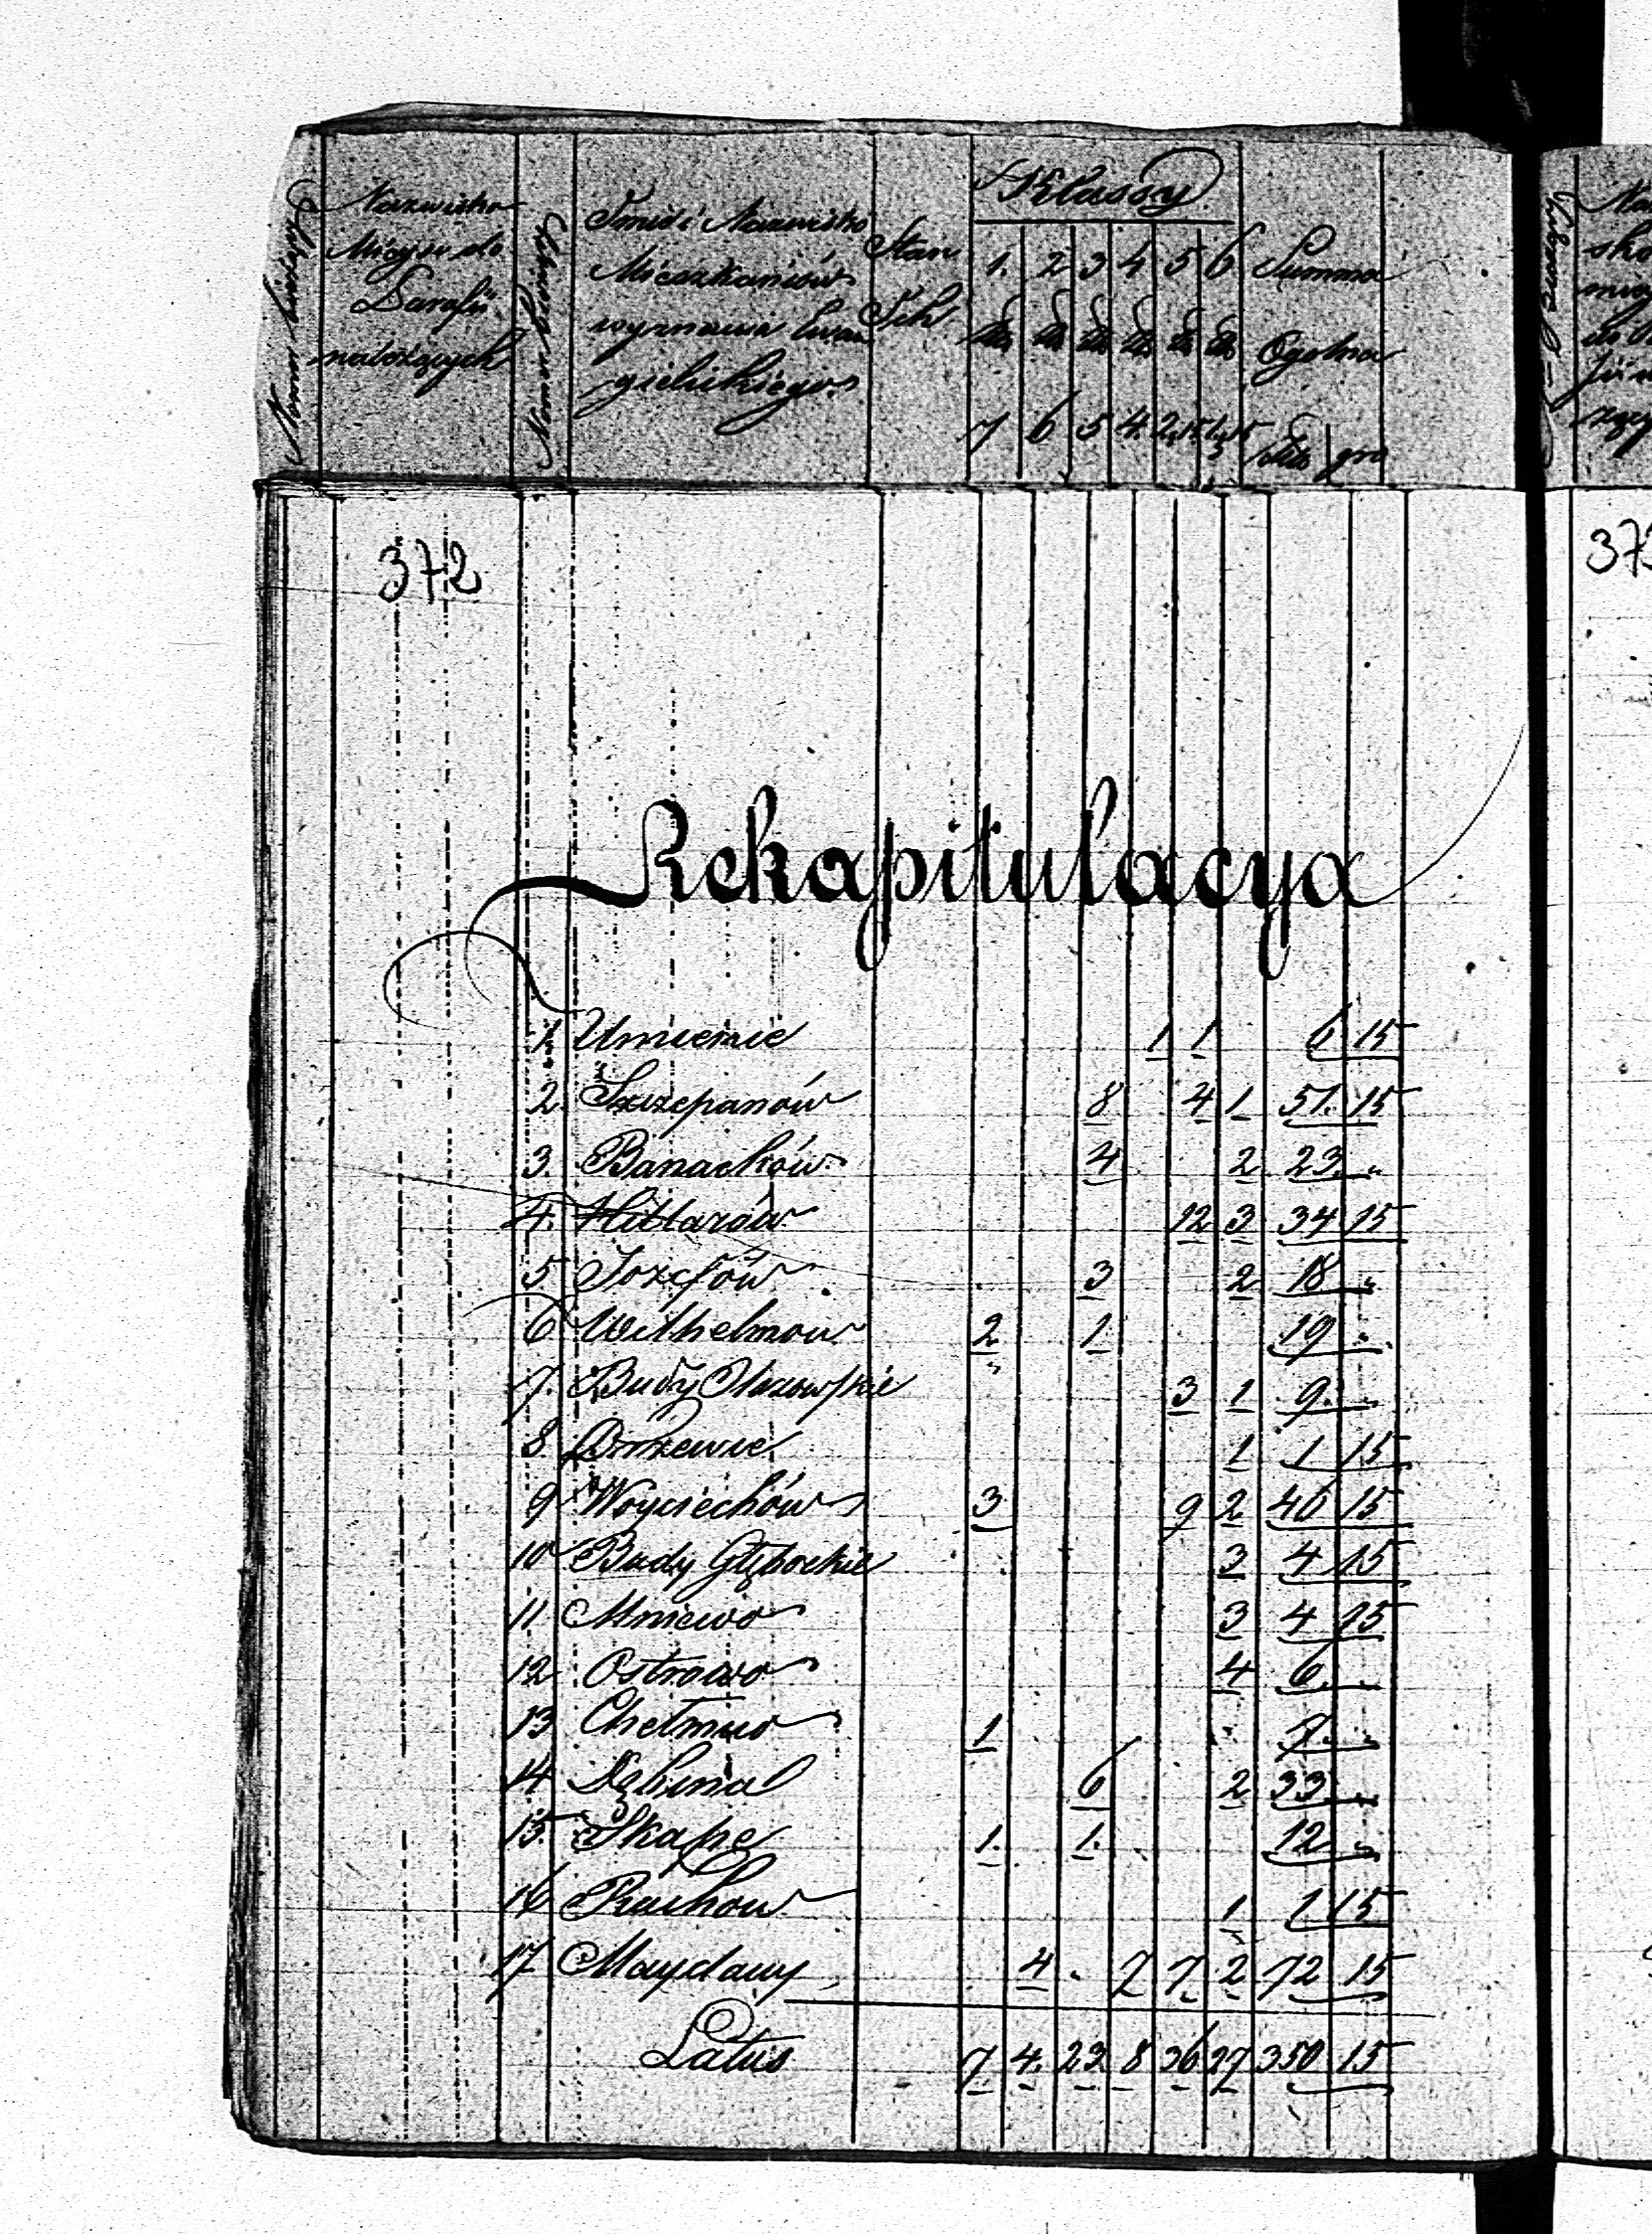 Numer bieżący
Nazwisko
Mieysc do
Parafii
należących
Numer bieżący
Imie i Nazwisko
Mieszkańców
wyznania Ewan
gielickiego
Stan
Ich
Klassy
1. 2 3 4 5 6
Summa
Ogolna
7 6 5 4 2.15 1.15
gro
372
Rekapitulacya
1 Umienie 1 1 6 15
2. Szczepanów 8 4 1 51. 15
3. Banachów 4 2 23 "
4. Hillarów 12 3 34 15
5 Jozefów 3 2 18 "
6 Wilhelmow 2 1 19 "
7. Budy 3 1 9. "
8 Brzewie 1 1 15
9 Woyciechów 3 9 2 46 15
10 Budy Głębockie 3 4 15
11 Mniewo 3 4 15
12 Ostrowo 4 6 "
13 Chełmno 1 7. "
14 6 2 33 "
15 Skape 1. 1. 12 "
16 Rachow 1 1 15
17 Maydany 4 " 7 7 2 72 15
Latus 7 4. 23 8 36 27 350 15